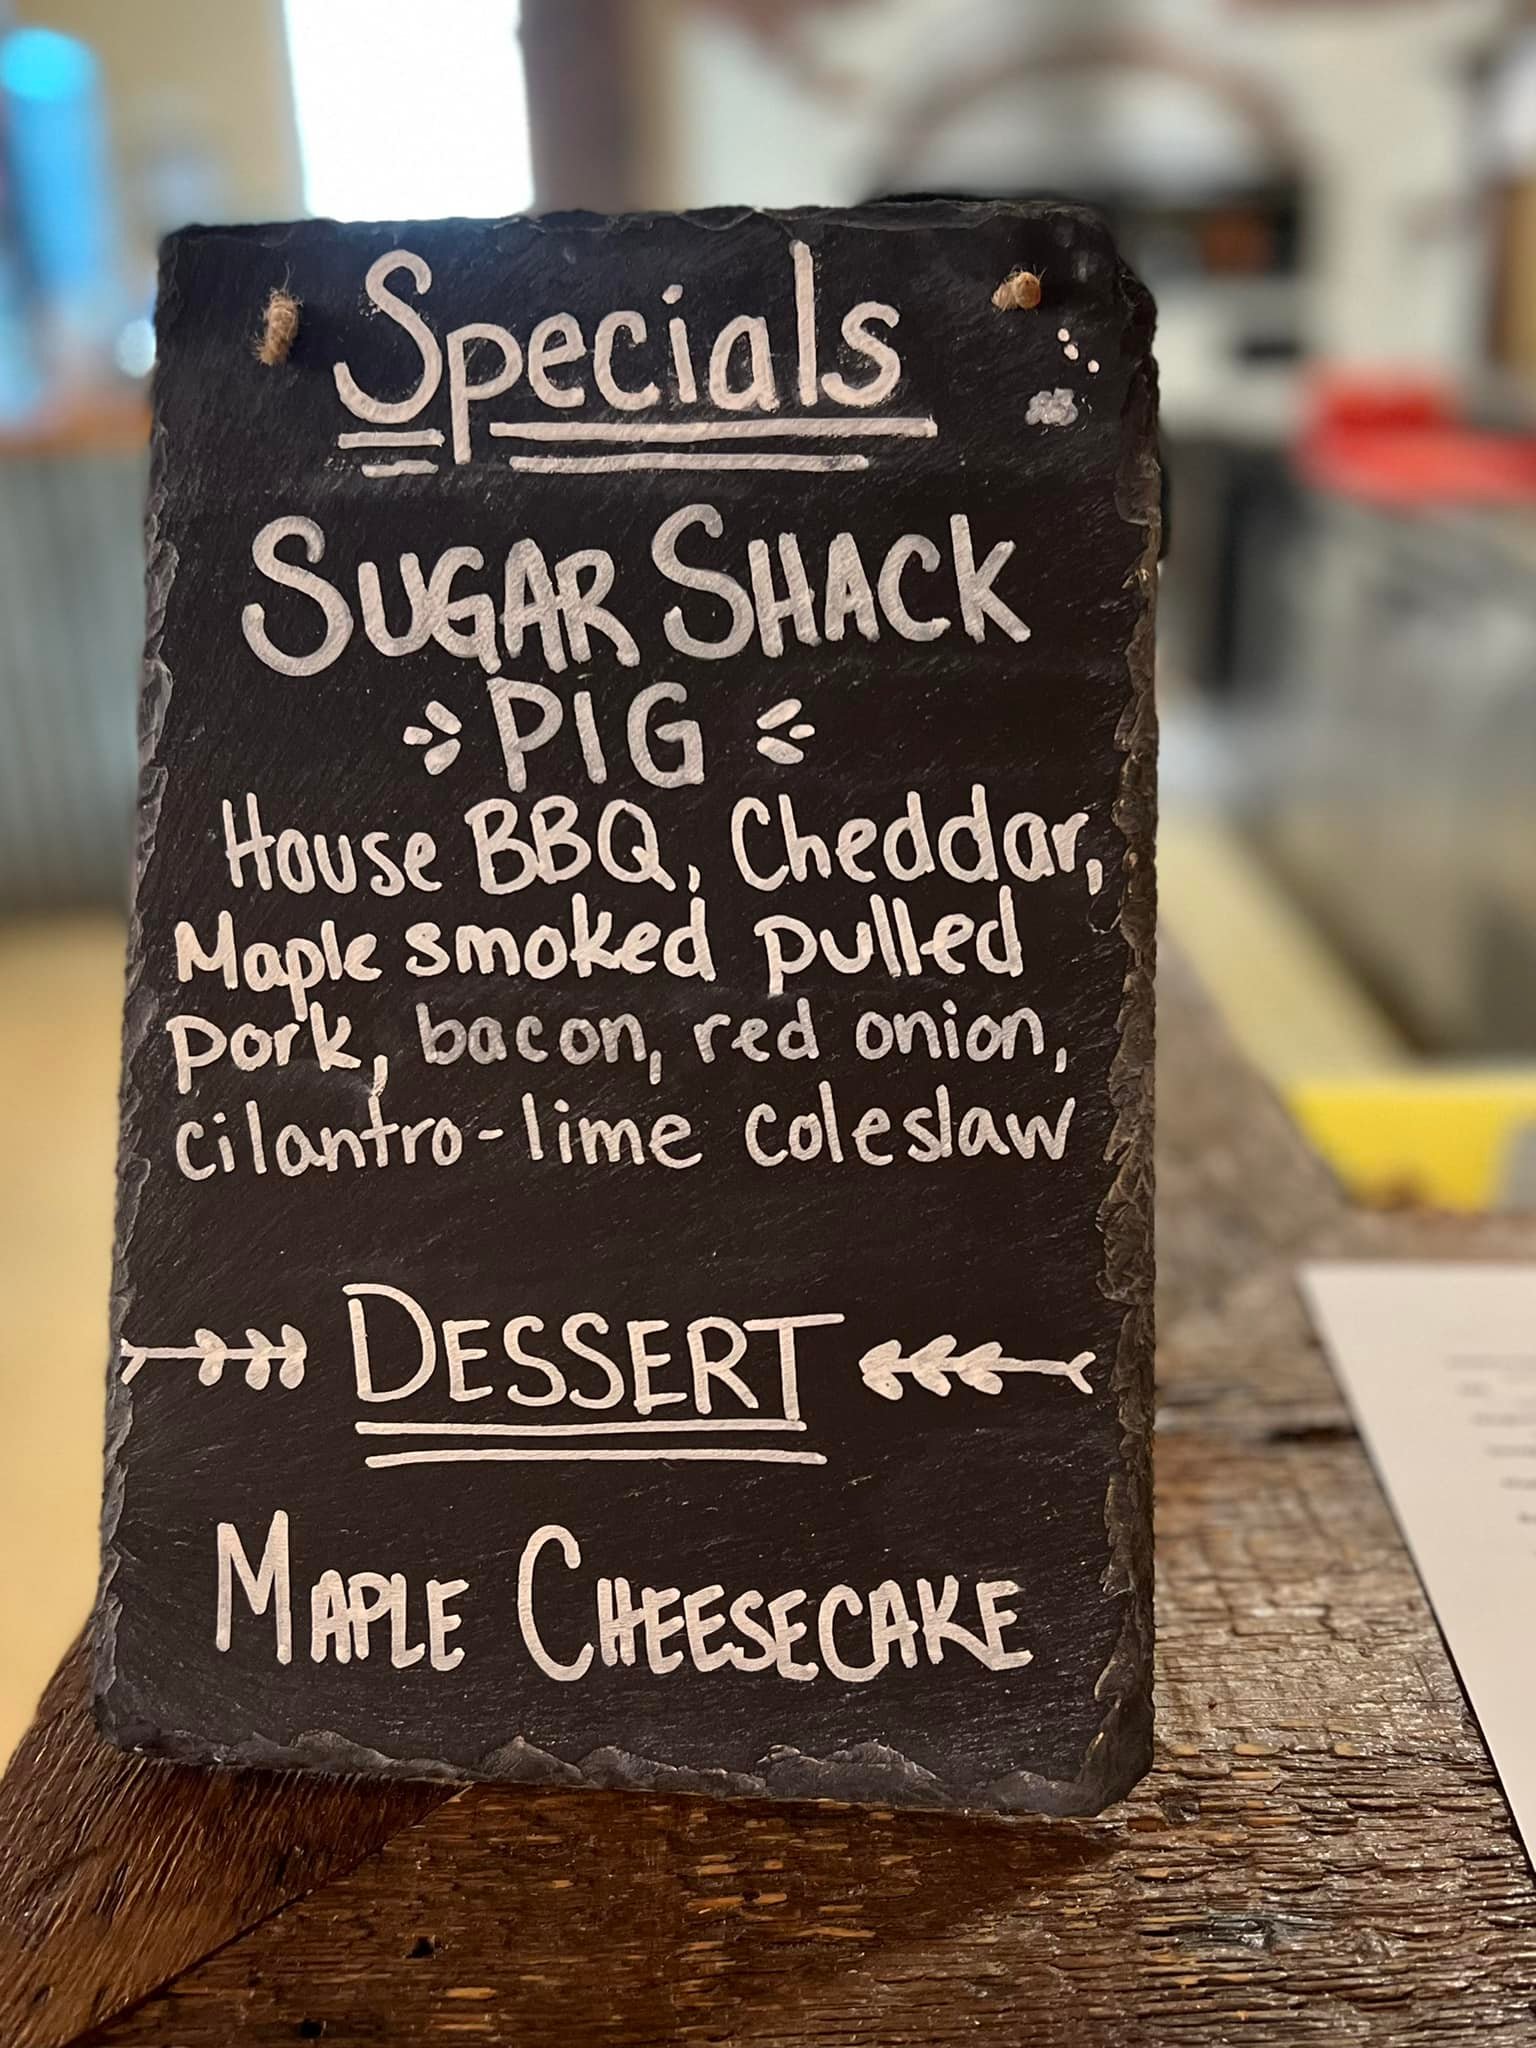 Specials
SUGAR SHACK
PIG
House BBQ, Cheddar,
Maple smoked pulled
pork, bacon, red onion,
cilantro-lime coleslaw
DESSERT
MAPLE CHEESECAKE